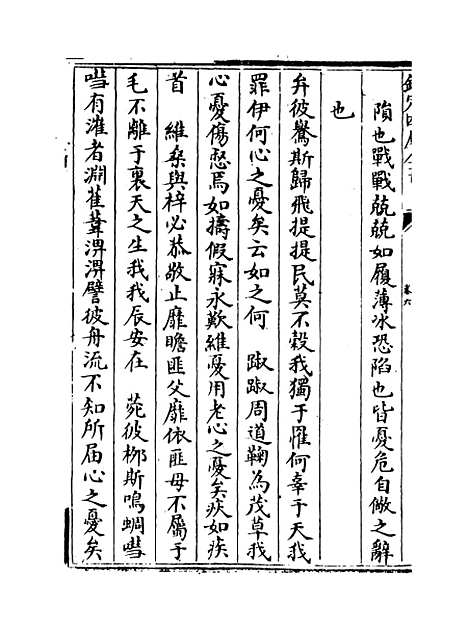 隕也戰戰兢兢如履薄冰恐陷也皆憂危自儆之辭
也
弁彼鸒斯歸飛提提民莫不穀我獨于罹何辜于天我
罪伊何心之憂矣云如之何　踧踧周道鞫為茂草我
心憂傷惄焉如擣假寐永歎維憂用老心之憂矣疢如疾
首　維桑與梓必恭敬止靡瞻匪父靡依匪母不屬于
毛不離于裏天之生我我辰安在　菀彼栁斯鳴蜩嘒
嘒有漼者淵萑葦淠淠譬彼舟流不知所届心之憂矣
卷六